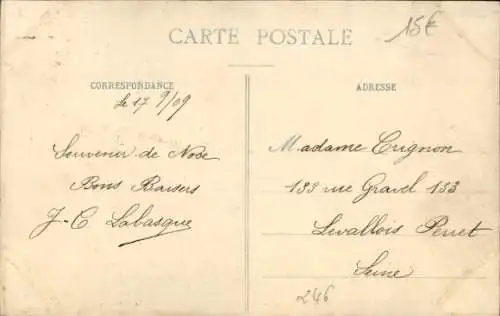 15€
CARTE POSTALE
CORRESPONDANCE
Le 17 9/09
Souvenir de Nose
Bons Baisers
J-C. Labasque
ADRESSE
Madame Crignon
133 rue Gravel 133
Levallois Perret
Seine
246